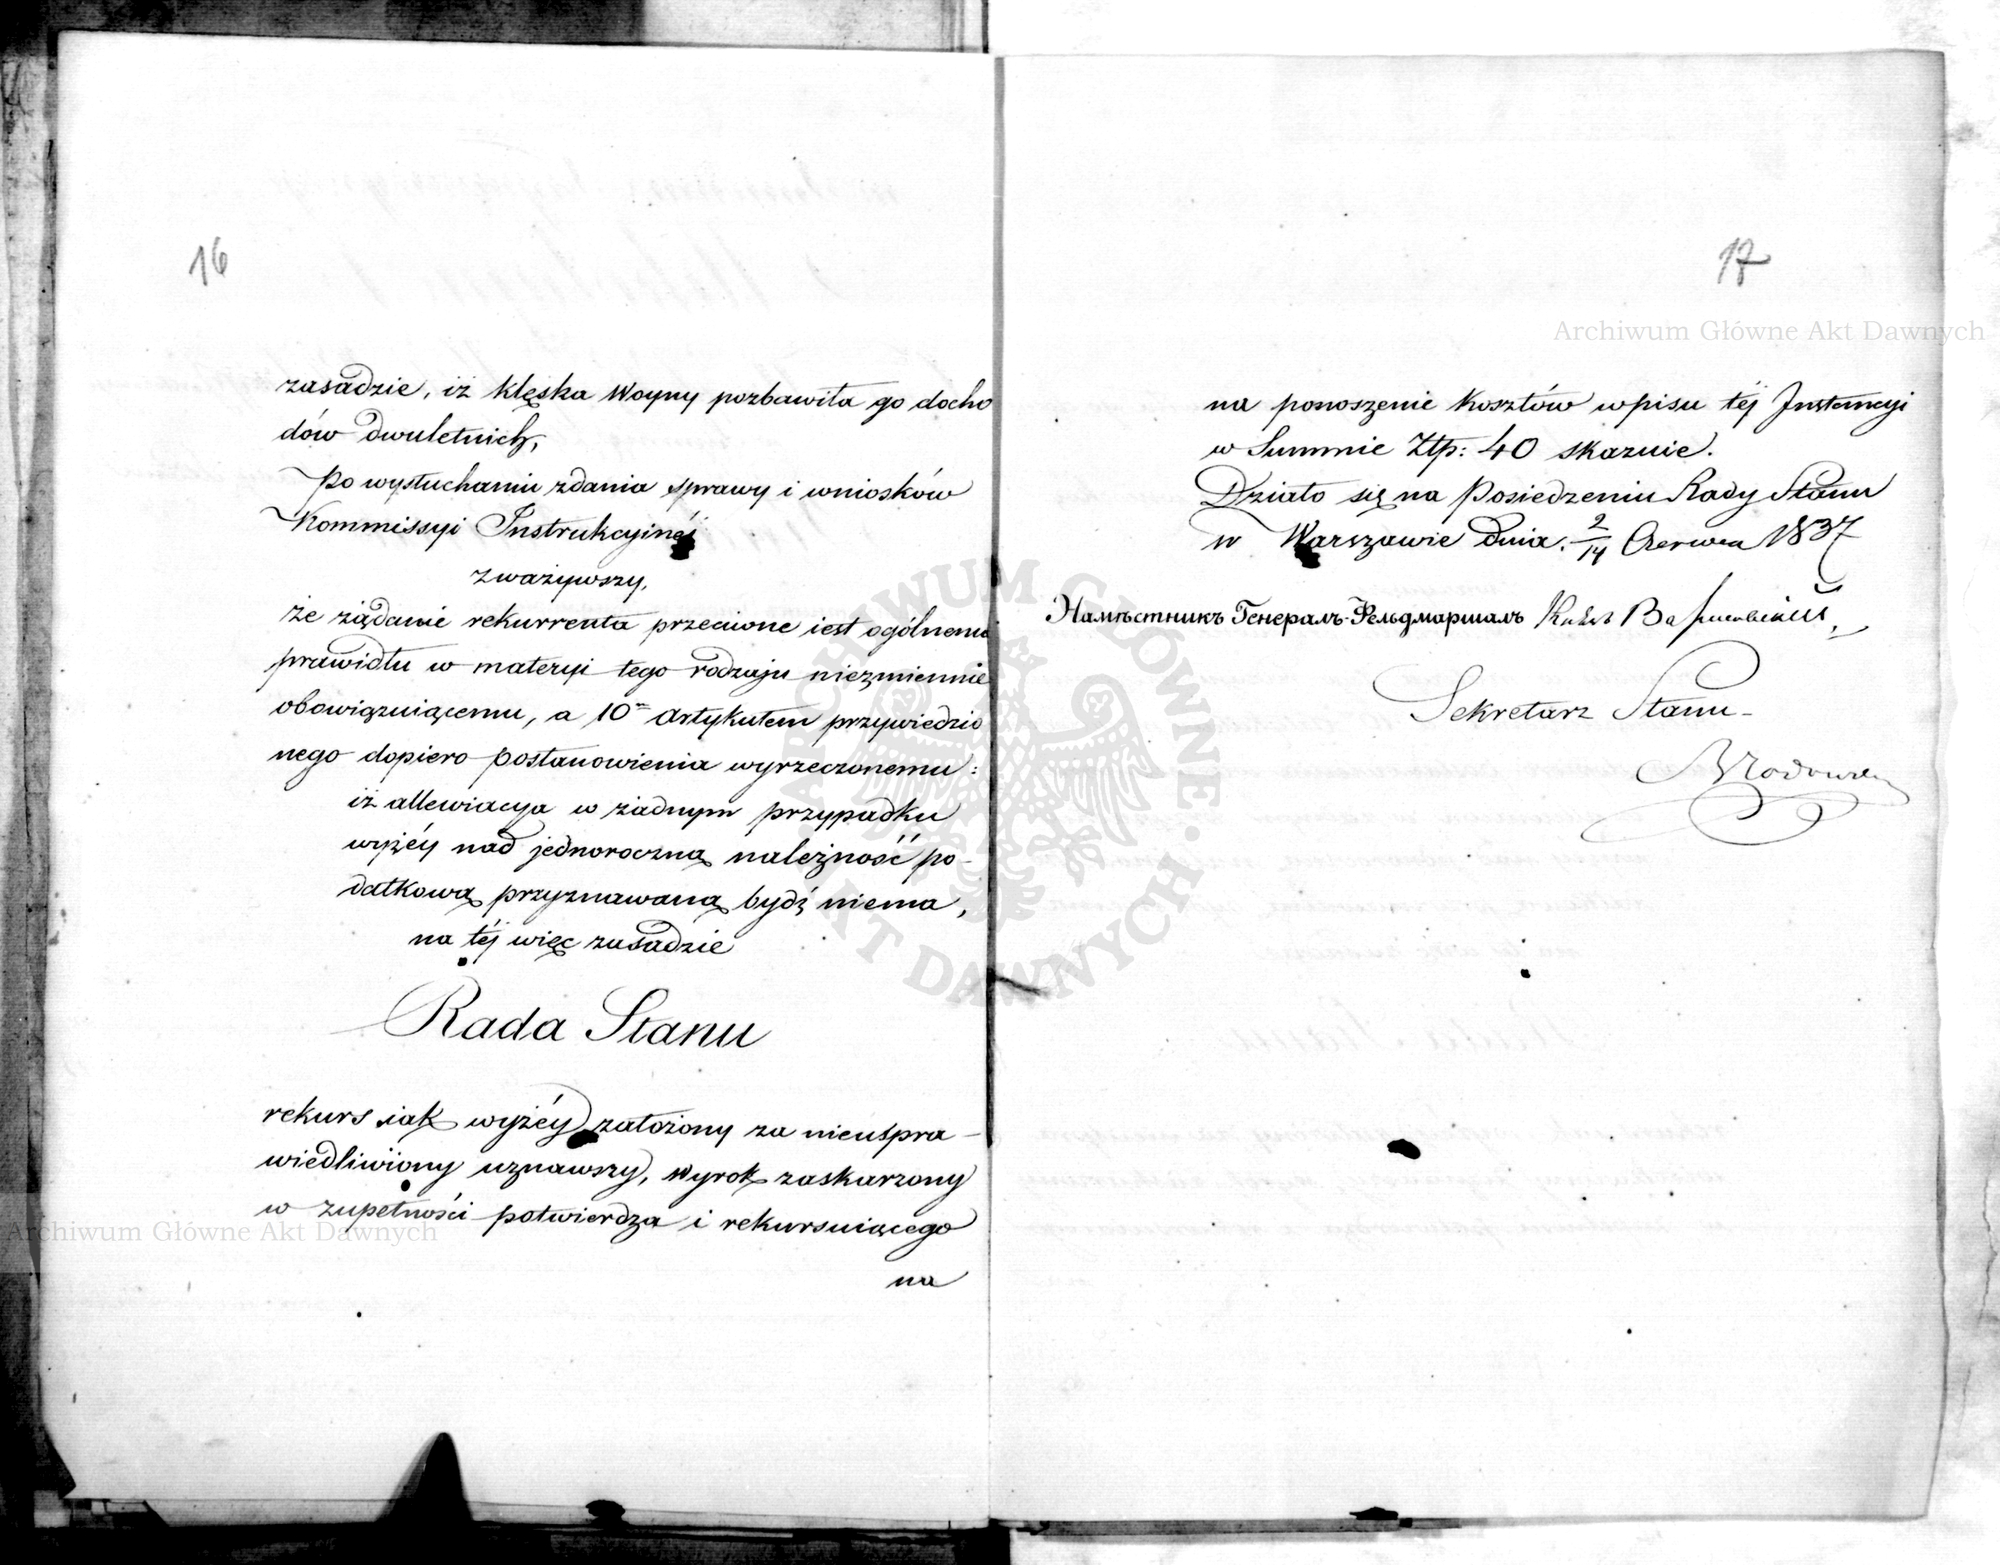 16
zasadzie, iż klęska Woyny pozbawiła go docho
dów dwuletnich,
Po wysłuchaniu zdania sprawy i wniosków
Kommissyi Instrukcyinéj
zważywszy,
że żądanie rekurrenta przeciwne iest ogólnemu
prawidłu w materyi tego rodzaju niezmiennie
obowięzuiącemu, a 10m artykułem przywiedzio
nego dopiero postanowienia wyrzeczonemu:
iż allewiacya w żadnym przypadku
wyżéy nad jednoroczną należność po-
datkową przyznawaną bydź niema,
na téj więc zasadzie
Rada Stanu
rekurs iak wyżéy założony za nieuspra-
wiedliwiony uznawszy, Wyrok zaskarżony
w zupełności potwierdza i rekursuiącego
na
17
na ponoszenie kosztów wpisu téj Instancyi
w Summie Złp: 40 skazuie.
Działo się na Posiedzeniu Rady Stanu
w Warszawie dnia 2/14 Czerwca 1837
Намѣстникъ Генералъ-Фельдмаршалъ Князь Варшавскій,
Sekretarz Stanu-
Archiwum Główne Akt Dawnych
Archiwum Główne Akt Dawnych
ARCHIWUM GŁÓWNE AKT DAWNYCH